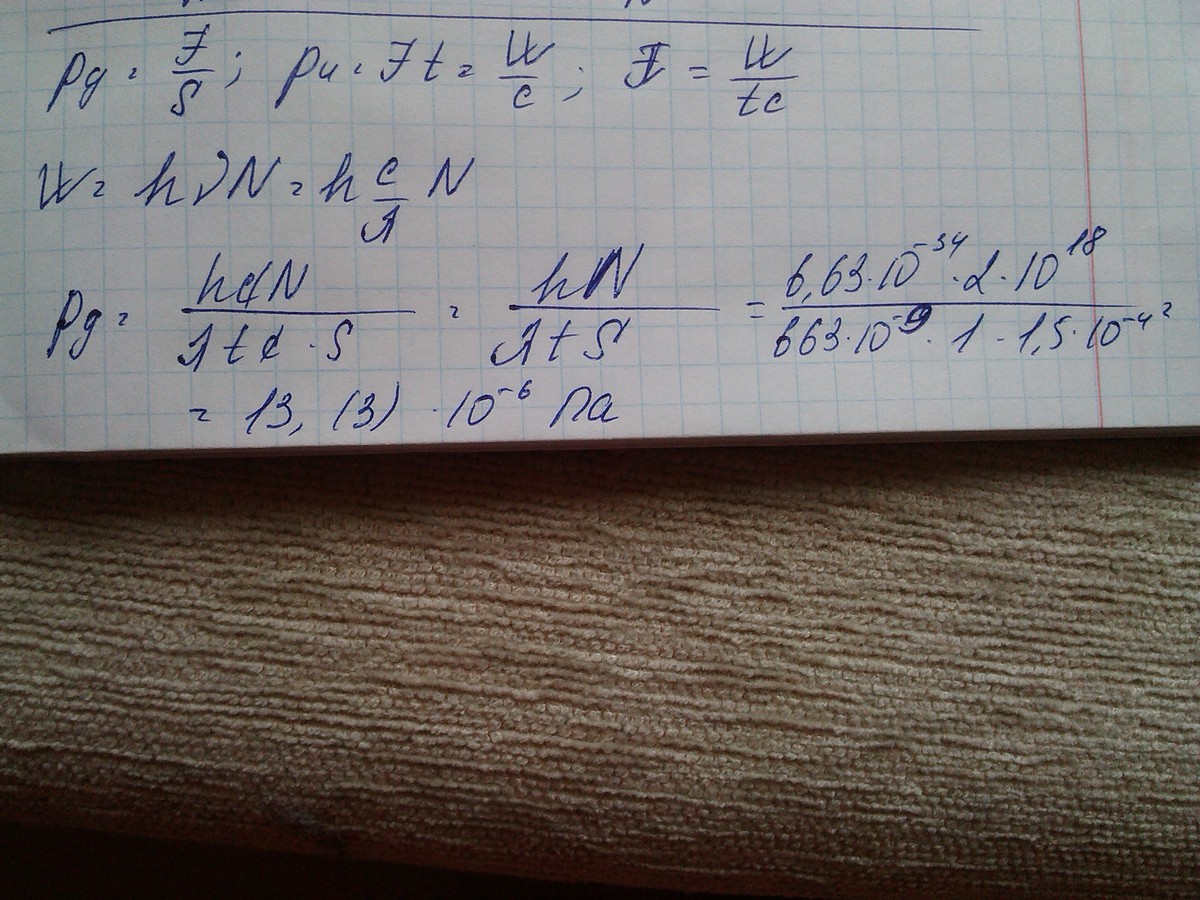 pg = F/S; pu = Ft = W/c; F = W/tc
W = hνN = h c/λ N
pg = hcN/λtc·S = hN/λtS = 6,63·10⁻³⁴·2·10¹⁸/663·10⁻⁹·1·1,5·10⁻⁴ =
= 13,(3)·10⁻⁶ Па